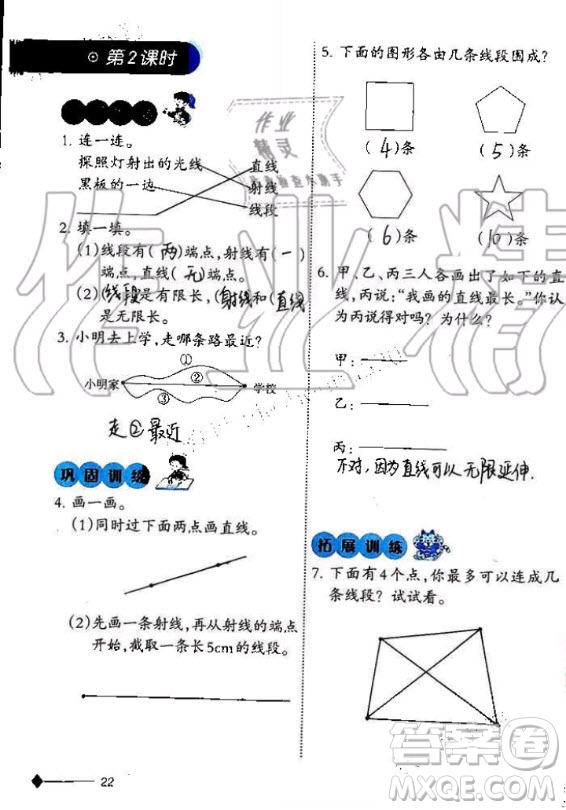 第2课时
1. 连一连。
探照灯射出的光线
直线
黑板的一边
射线
线段
2. 填一填。
(1)线段有(两)端点,射线有(一)
端点,直线(无)端点。
(2)(线段)是有限长,(射线和(直线
是无限长。
3. 小明去上学,走哪条路最近?
①
小明家
②
学校
③
走②最近
巩固训练
4. 画一画。
(1)同时过下面两点画直线。
(2)先画一条射线,再从射线的端点
开始,截取一条长5cm的线段。
22
5. 下面的图形各由几条线段围成?
(4)条
(5)条
(6)条
(10)条
6. 甲、乙、丙三人各画出了如下的直
线,丙说:“我画的直线最长。”你认
为丙说得对吗?为什么?
甲:
乙:
丙:
不对,因为直线可以无限延伸.
拓展训练
7. 下面有4个点,你最多可以连成几
条线段?试试看。
作业
精灵
作业精
答案圈
MXQE.COM